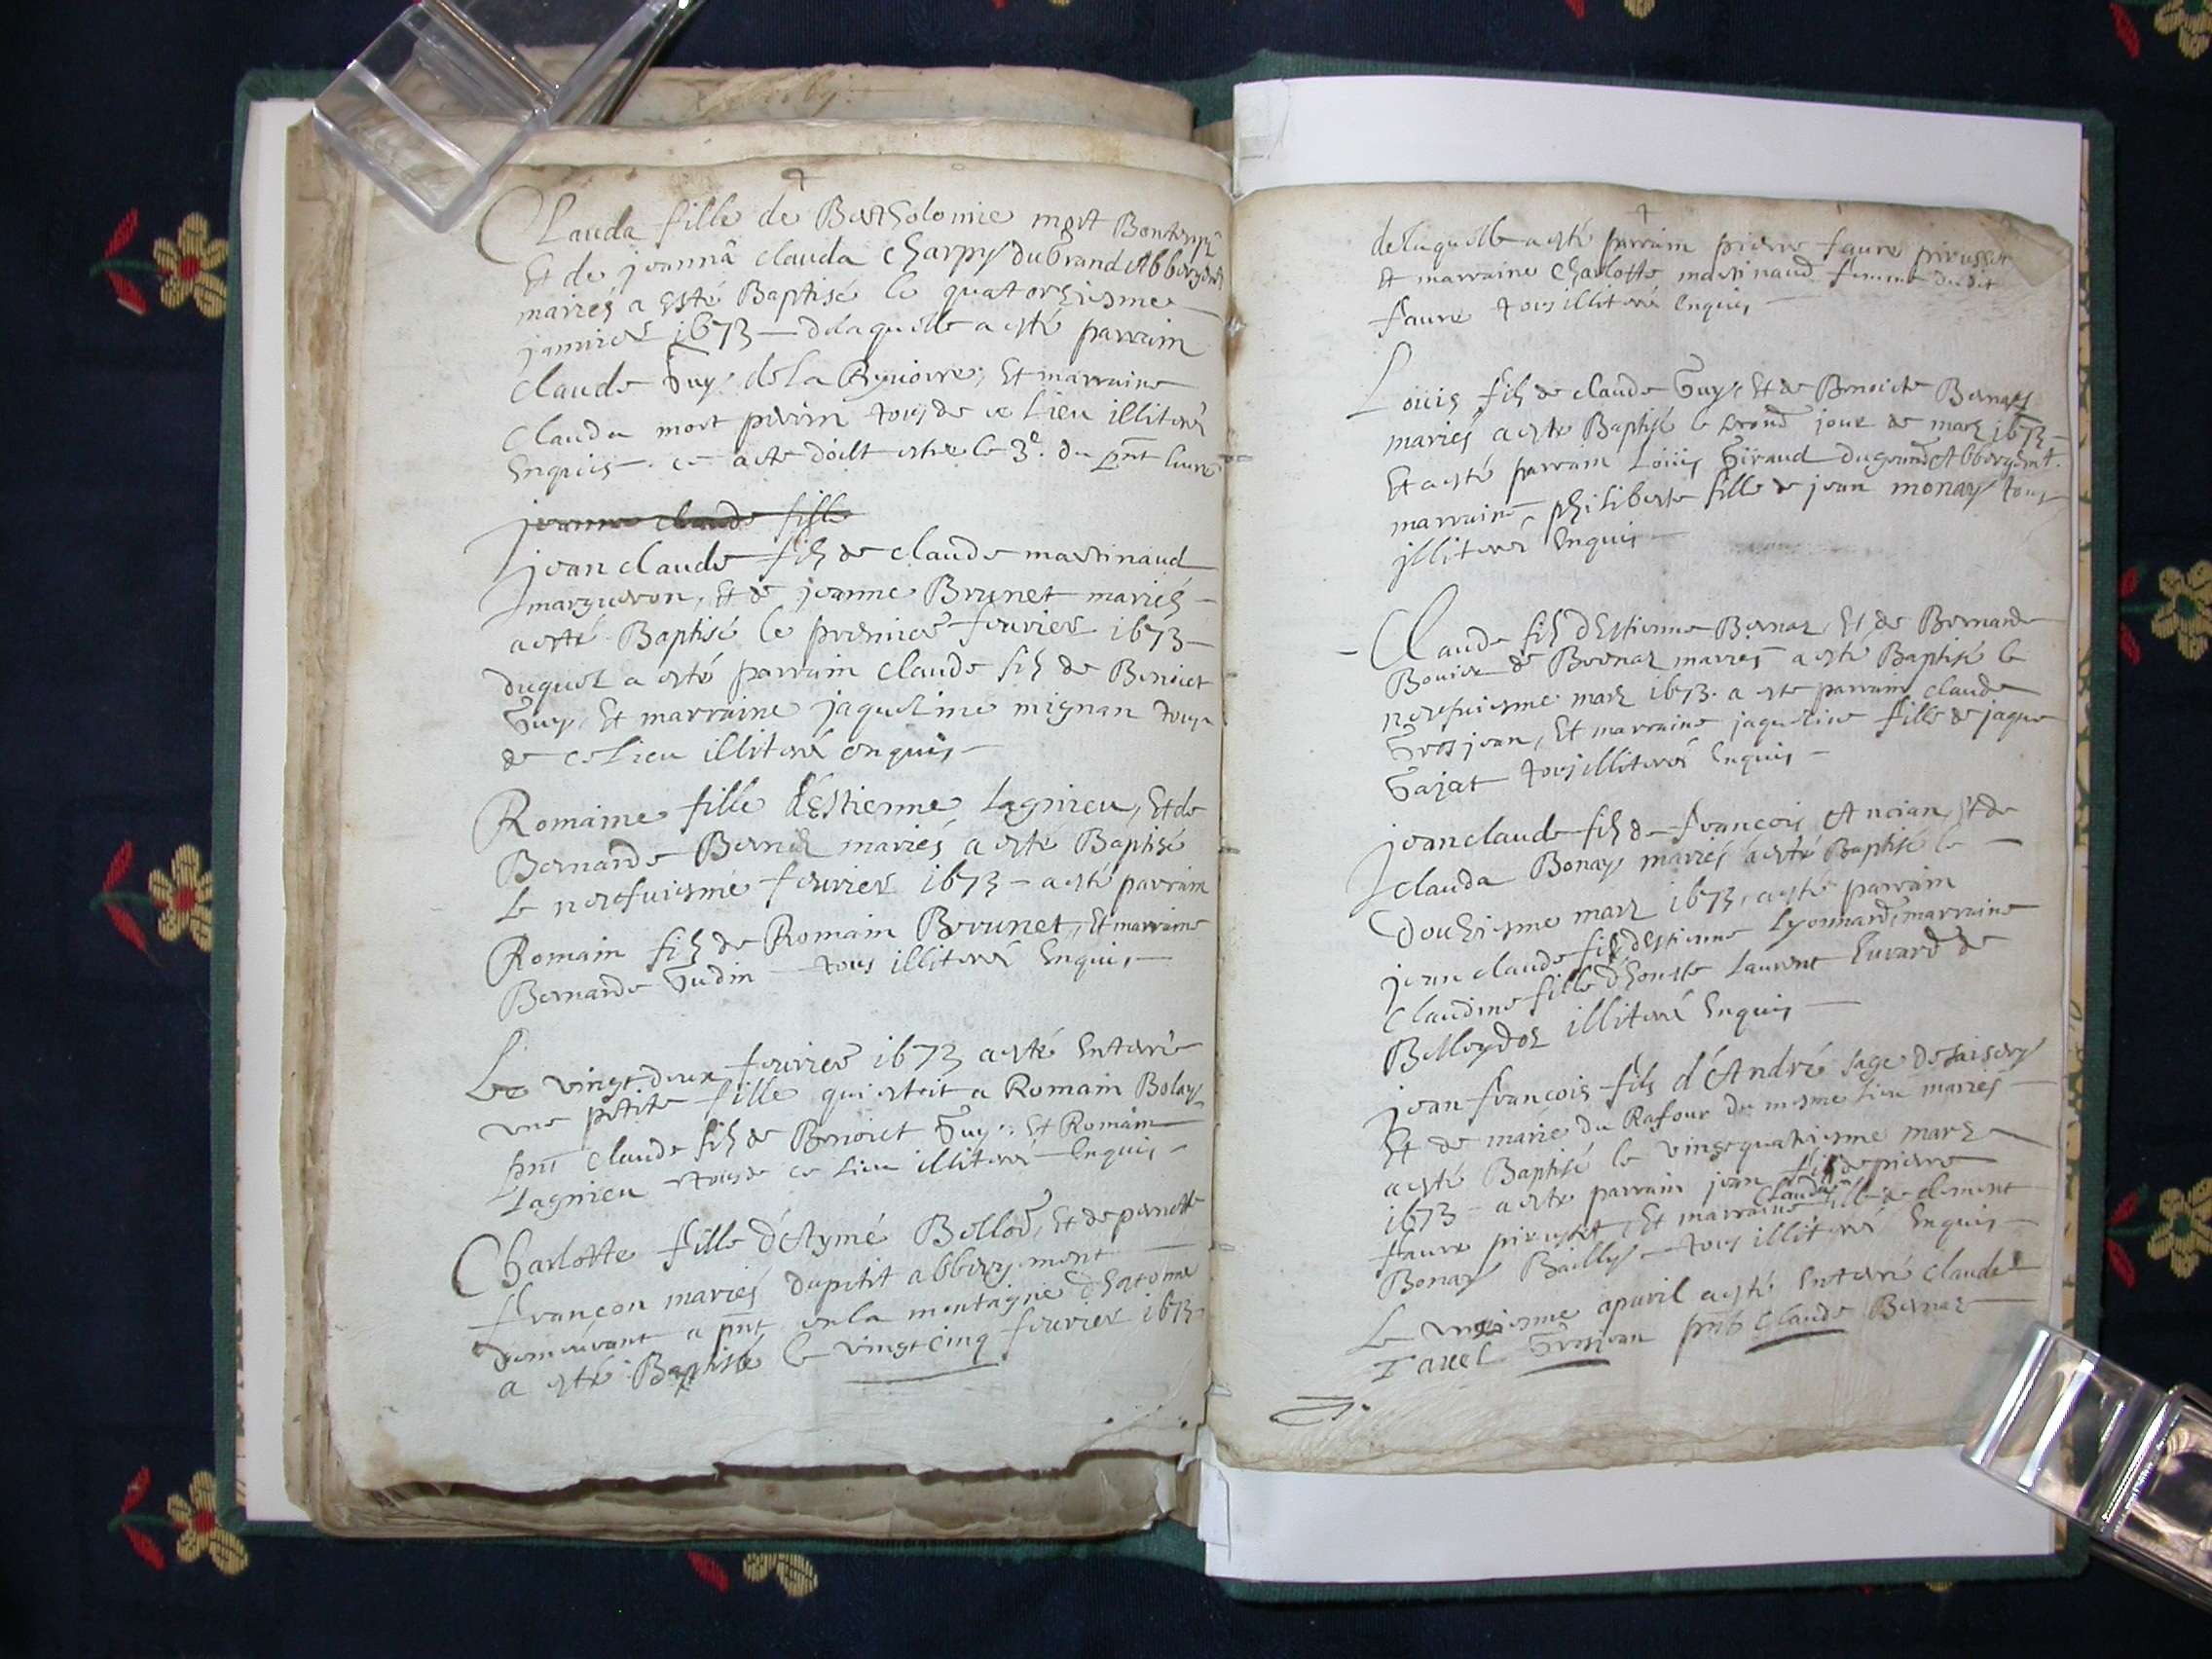 Clauda fille de Bartholomie mort Bontemps
Et de jeanna clauda Charpy du Grand Abbergemt
mariés a Esté Baptisé le quatorziesme
jannier 1673 — delaquelle a esté parrain
claude Guy de la Ryuoire, Et marraine
Clauda mort perrin tous de ce Lieu illiterés
Enquis — ce acte doibt estre le 3e. du pnt liure
jeanne claude fille
jean claude fils de claude martinaud
marqueron, Et de jeanne Brunet mariés —
a esté Baptisé le premier feurier 1673 —
duquel a esté parrain claude fils de Benoict
Guy, Et marraine jaqueline mignan tous
de ce Lieu illiterés enquis —
Romaine fille d'Estienne Lagnieu, Et de
Bernarde Bernaz mariés a esté Baptisé
Le neufuiesme feurier 1673 — a esté parrain
Romain fils de Romain Brunet, Et marraine
Bernarde Gudin — tous illiterés Enquis —
Le vingt deux feurier 1673 a esté Enterré
vne petite fille qui estoit a Romain Bolay
pnt Claude fils de Benoict Guy, Et Romain
Lagnieu tous de ce Lieu illiterés Enquis —
Charlotte fille d'Aymé Bellod, Et de pernette
françon mariés du petit abbergement
demeurant a pnt en la montagne d'hotonne
a esté Baptisé le vingt cinq feurier 1673
de laquelle a esté parrain pierre faure perusset
Et marraine Charlotte martinaud femme dudit
faure tous illiterés Enquis —
Loüis fils de claude Guy, Et de Benoicte Bernaz
mariés a esté Baptisé le second jour de mars 1673 —
Et a esté parrain Loüis Giraud du grand Abbergemt.
marraine philiberte fille de jean monay tous
jlliterés Enquis —
Claude fils d'Estienne Bernaz, Et de Bernarde
Bouier de Bernaz mariés a esté Baptisé le
neufuiesme mars 1673. a esté parrain claude
Grosjean, Et marraine jaqueline fille de jaque
Gajat tous illiterés Enquis —
jean claude fils de françois Ancian, Et de
clauda Bonay mariés a esté Baptisé le —
douziesme mars 1673, a esté parrain
jean claude fils d'Estienne Lyonnard, marraine
Claudine fille d'honste Laurent Euvard de
Belleydoz illiterés Enquis —
jean françois fils d'André sage
Et de marie du Rafour du mesme Lieu mariés
a esté Baptisé le vingt quatriesme mars
1673 — a esté parrain jean fils de pierre
faure perusset, Et marraine Clauda fille de clement
Bonay Bailly — tous illiterés Enquis —
Le apuril a esté Enterré claude
Tauel Grosjean pnt Claude Bernaz